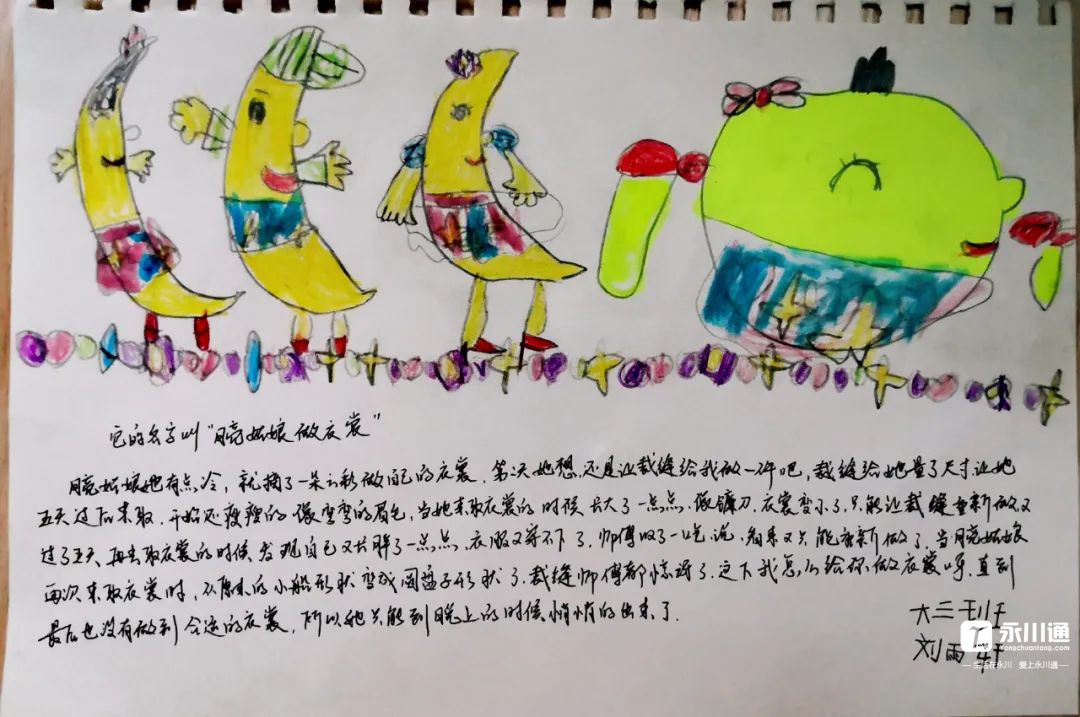 它的名字叫"月亮姑娘做衣裳"
月亮姑娘她有点冷，就摘了一朵云彩做自己的衣裳。第天她想，还是让裁缝给我做一件吧，裁缝给她量了尺寸让她
五天过后来取．开始还瘦瘦的像弯弯的眉毛，当她来取衣裳的时候长大了一点点．像镰刀，衣裳变小了，只能让裁缝重新做，又
过了五天，再去取衣裳的时候发现自己又长胖了一点点，衣服又穿不下了．师傅叹了一口气说，看来又只能重新做了．当月亮姑娘
再次来取衣裳时，从原来的小船形状变成圆盘子形状了．裁缝师傅都惊讶了．这下我怎么给你做衣裳呀，直到
最后也没有做到合适的衣裳，所以她只能到晚上的时候悄悄的出来了．
大三班
刘雨轩
永川通
Yongchuantong.com
生活在永川 爱上永川通